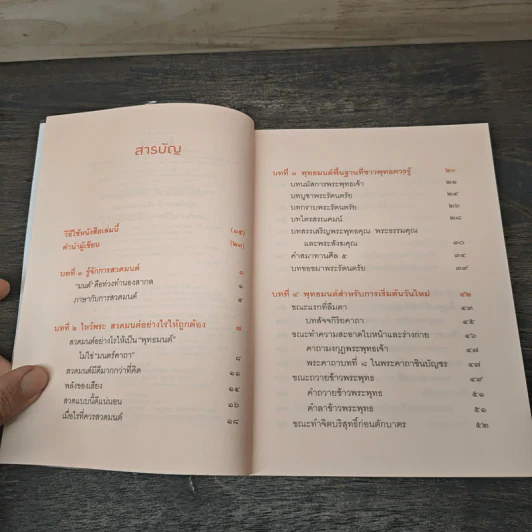 สารบัญ
วิธีใช้หนังสือเล่มนี้ (๑๕)
คำนำผู้เขียน (๒๓)
บทที่ ๑ รู้จักการสวดมนต์ ๑
"มนต์" คือท่วงทำนองสากล ๑
ภาษากับการสวดมนต์
บทที่ ๒ ไหว้พระ สวดมนต์อย่างไรให้ถูกต้อง ๗
สวดมนต์อย่างไรให้เป็น "พุทธมนต์"
ไม่ใช่ "มนตร์คาถา" ๘
สวดมนต์มีดีมากกว่าที่คิด ๑๑
พลังของเสียง ๑๕
สวดแบบนี้ดีแน่นอน ๑๖
เมื่อไรที่ควรสวดมนต์ ๑๘
บทที่ ๓ พุทธมนต์พื้นฐานที่ชาวพุทธควรรู้ ๒๐
บทนมัสการพระพุทธเจ้า ๒๑
บทบูชาพระรัตนตรัย ๒๔
บทกราบพระรัตนตรัย ๒๖
บทไตรสรณคมน์ ๒๘
บทสรรเสริญพระพุทธคุณ พระธรรมคุณ
และพระสังฆคุณ ๓๐
คำสมาทานศีล ๕ ๓๔
บทขอขมาพระรัตนตรัย ๓๙
บทที่ ๔ พุทธมนต์สำหรับการเริ่มต้นวันใหม่ ๔๒
ขณะแรกที่ลืมตา ๔๓
บทลัจจกิริยคาถา ๔๕
ขณะทำความสะอาดใบหน้าและร่างกาย ๔๖
คาถามงกุฎพระพุทธเจ้า ๔๗
พระคาถาบทที่ ๘ ในพระคาถาชินบัญชร ๔๗
ขณะถวายข้าวพระพุทธ ๔๙
คำถวายข้าวพระพุทธ ๕๑
คำลาข้าวพระพุทธ ๕๑
ขณะทำจิตบริสุทธิ์ก่อนตักบาตร ๕๒